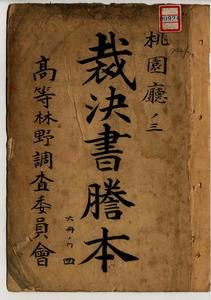 桃園廳ノ三
裁決書謄本
六冊ノ內四
高等林野調査委員會